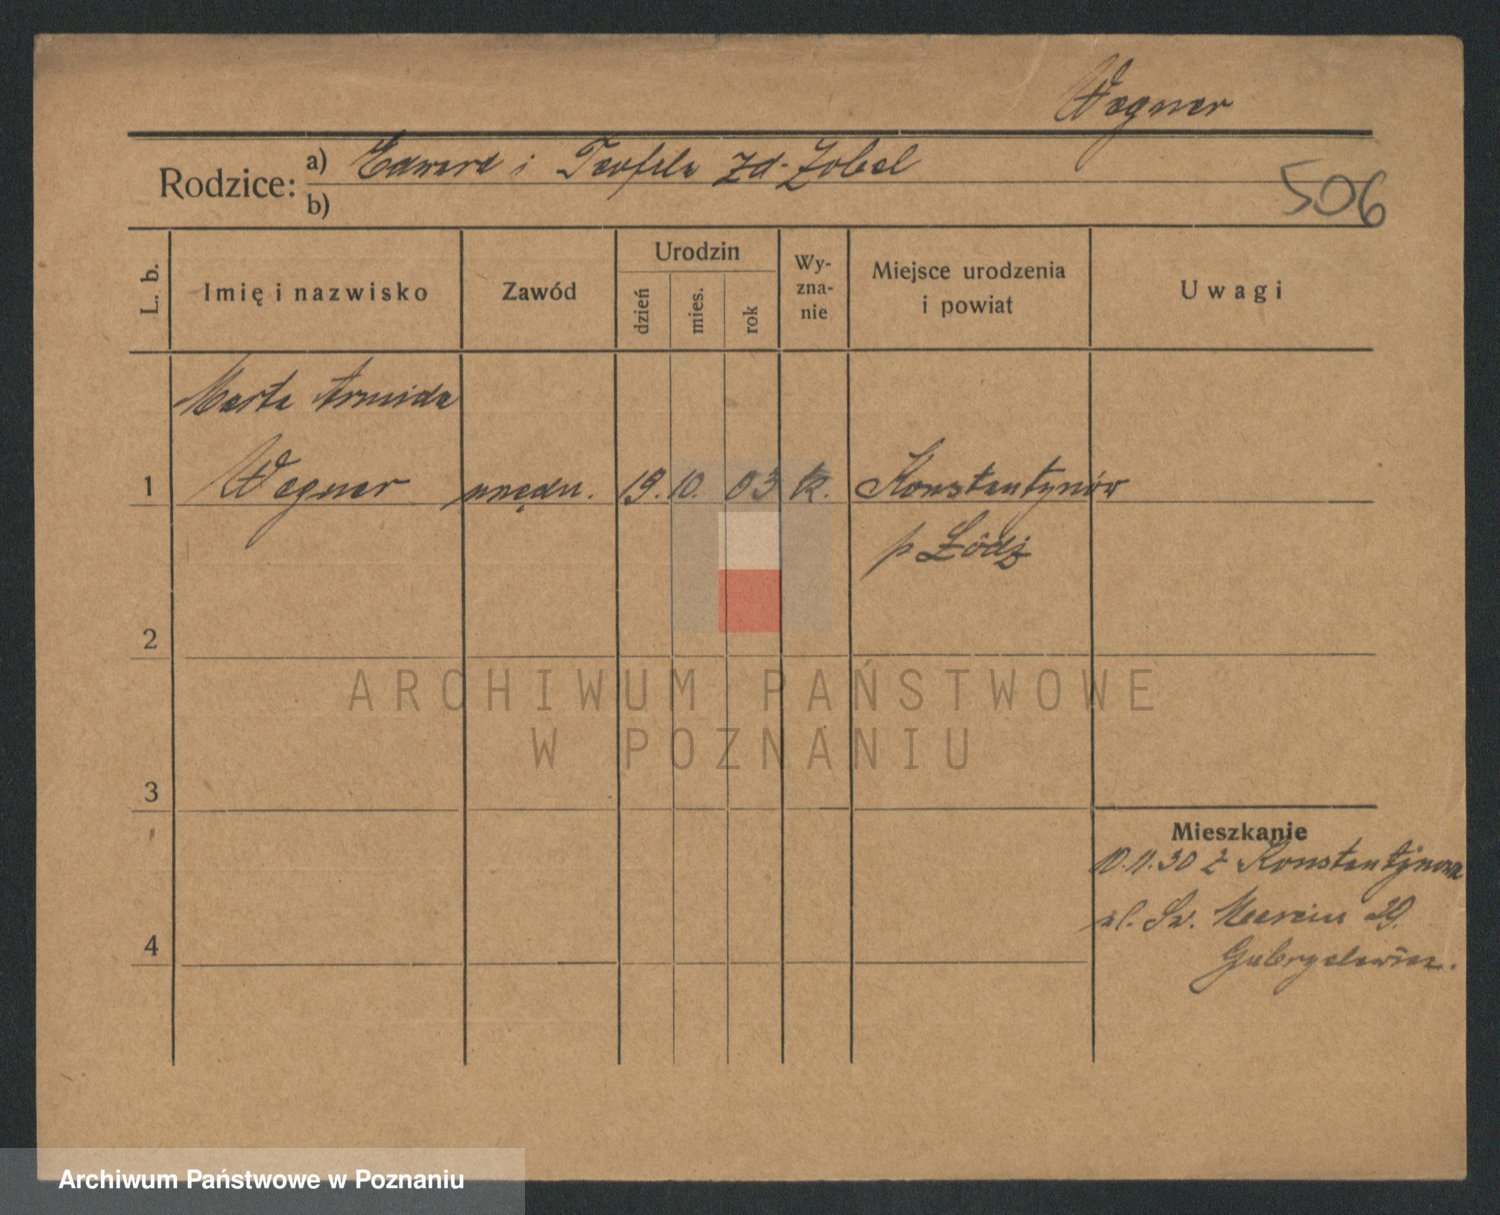 Wegner
Rodzice: a) Edward i Teofila zd. Zobel
b)
506
L. b.
Imię i nazwisko
Zawód
Urodzin
dzień
mies.
rok
Wy-
zna-
nie
Miejsce urodzenia
i powiat
Uwagi
Marta Armida
1 Wegner urzędn. 19. 10. 03 k. Konstantynów
p Łódź
2
ARCHIWUM PAŃSTWOWE
W POZNANIU
3
Mieszkanie
10.11.30 z Konstantynowa
ul. Św. Marcin 29.
4
Archiwum Państwowe w Poznaniu